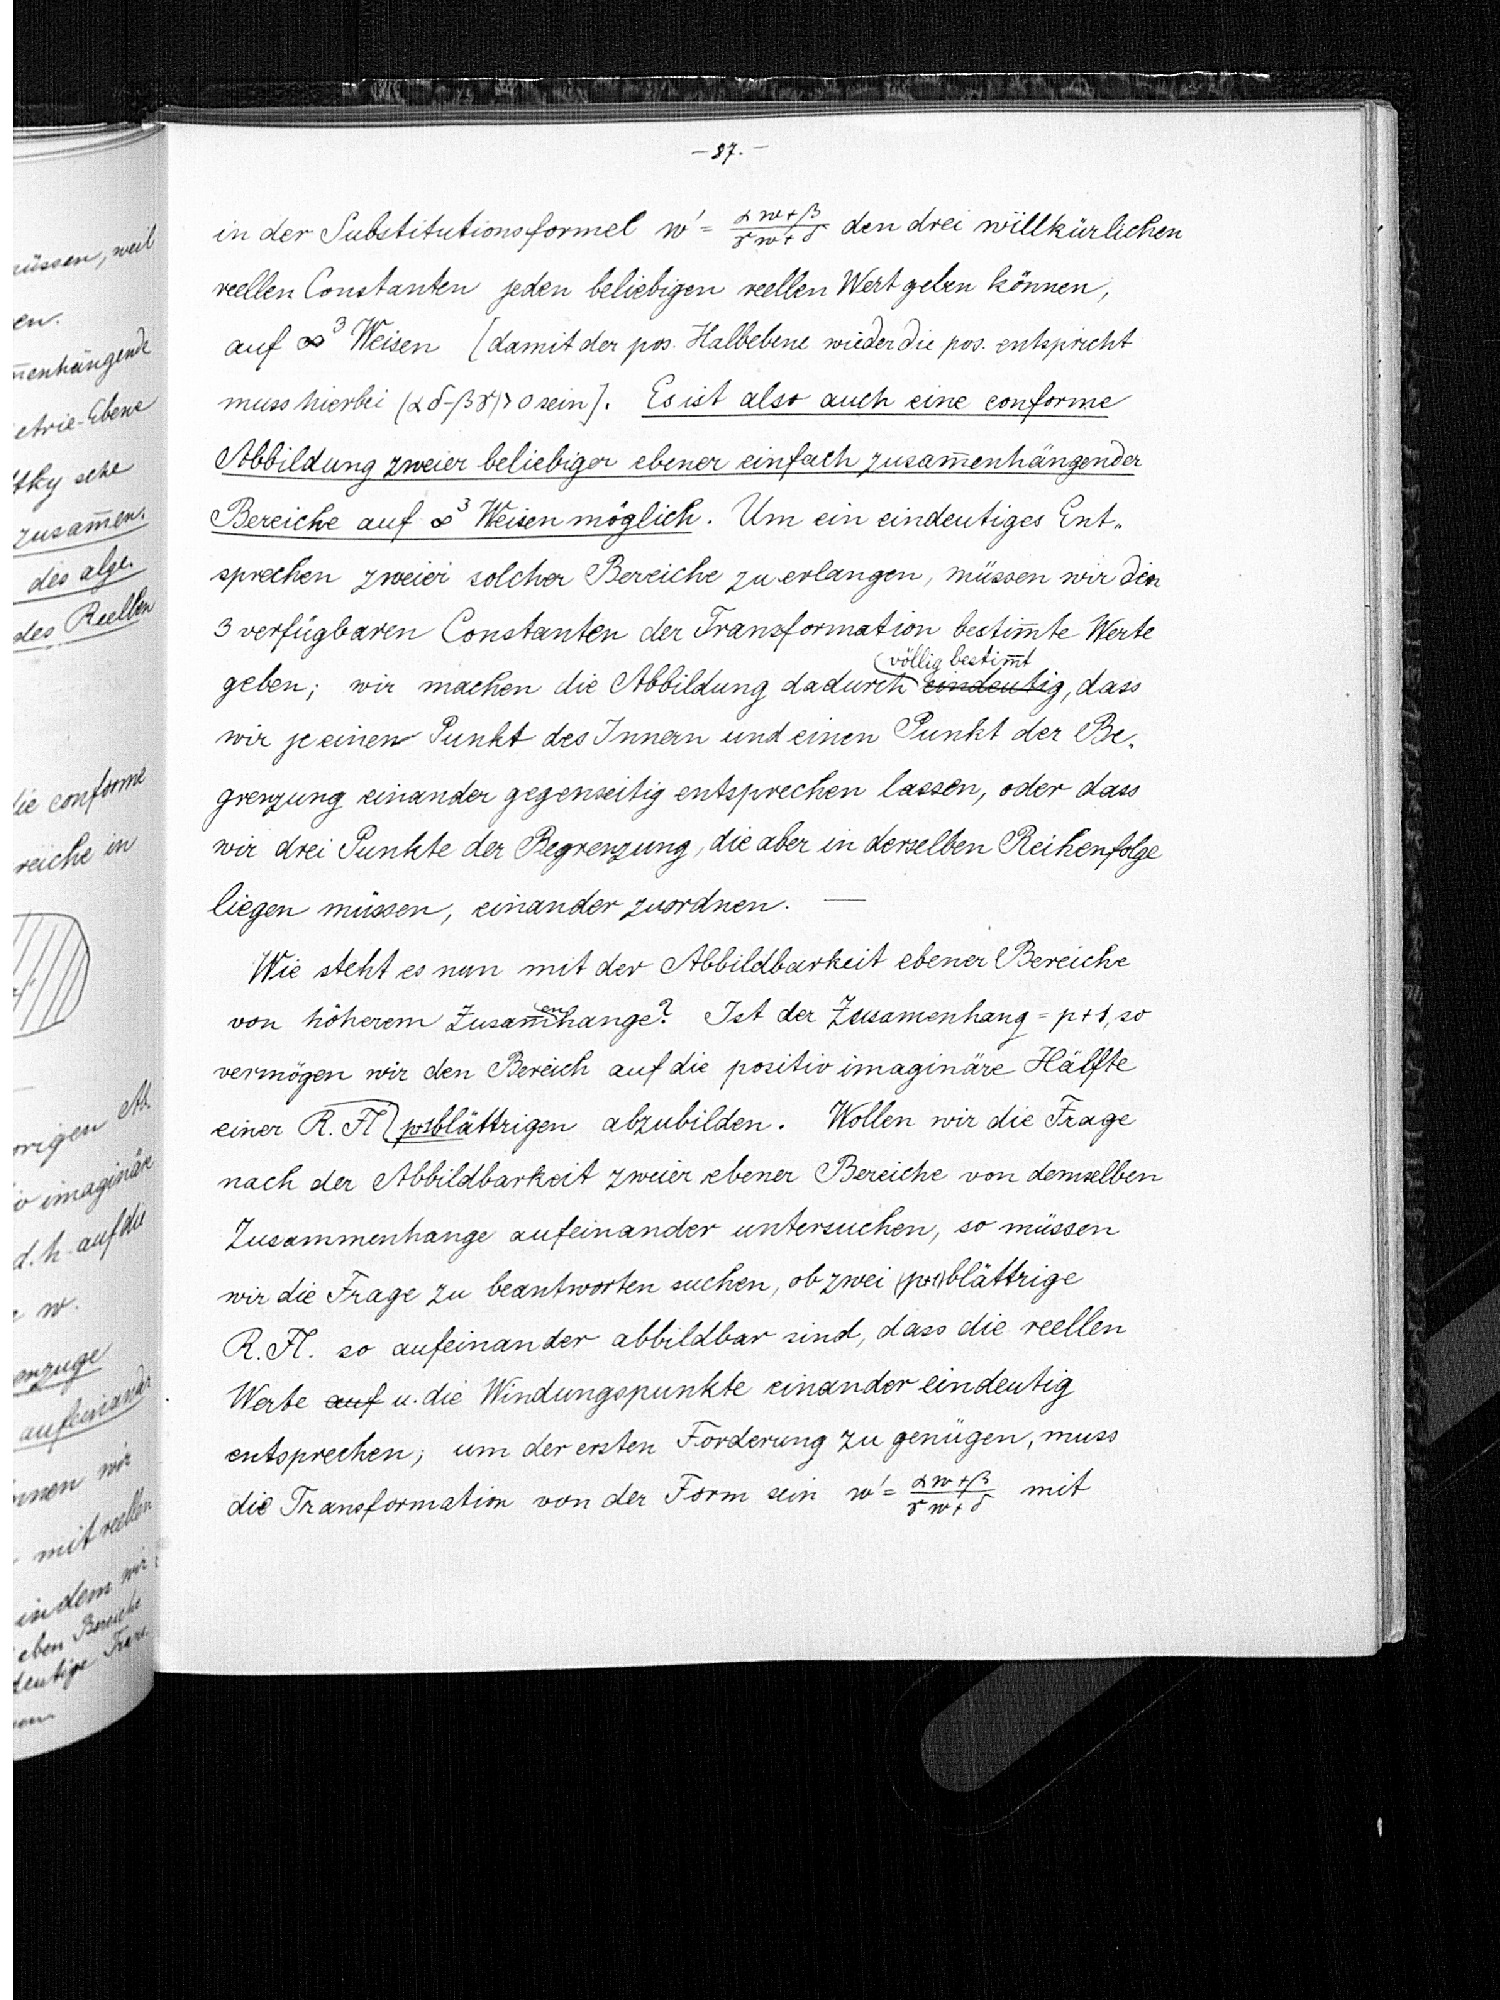 üssen, weil
en.
menhängende
etrie-Ebene
tky sche
zusam̅en.
des alge.
des Reellen
die conforme
reiche in
origen Ab.
iv imaginäre
d.h. auf die
e w.
enzuge
aufeinander
önnen wir
mit reellen
indem wir
eben Bereiche
deutige Trans.
-87.-
in der Substitutionsformel w' = (αw+β)/(γw+δ) den drei willkürlichen
reellen Constanten jeden beliebigen reellen Wert geben können,
auf ∞³ Weisen [damit der pos. Halbebene wieder die pos. entspricht
muss hierbei (αδ-βγ)>0 sein]. Es ist also auch eine conforme
Abbildung zweier beliebiger ebener einfach zusam̅enhängender
Bereiche auf ∞³ Weisen möglich. Um ein eindeutiges Ent-
sprechen zweier solcher Bereiche zu erlangen, müssen wir den
3 verfügbaren Constanten der Transformation bestim̅te Werte
völlig bestim̅t
geben; wir machen die Abbildung dadurch eindeutig, dass
wir je einen Punkt des Innern und einen Punkt der Be-
grenzung einander gegenseitig entsprechen lassen, oder dass
wir drei Punkte der Begrenzung, die aber in derselben Reihenfolge
liegen müssen, einander zuordnen. —
Wie steht es nun mit der Abbildbarkeit ebener Bereiche
von höherem Zusam̅enhange? Ist der Zusamenhang = p+1, so
vermögen wir den Bereich auf die positiv imaginäre Hälfte
einer R. Fl. p+1blättrigen abzubilden. Wollen wir die Frage
nach der Abbildbarkeit zweier ebener Bereiche von demselben
Zusammenhange aufeinander untersuchen, so müssen
wir die Frage zu beantworten suchen, ob zwei (p+1)blättrige
R. Fl. so aufeinander abbildbar sind, dass die reellen
Werte auf u. die Windungspunkte einander eindeutig
entsprechen; um der ersten Forderung zu genügen, muss
die Transformation von der Form sein w' = (αw+β)/(γw+δ) mit